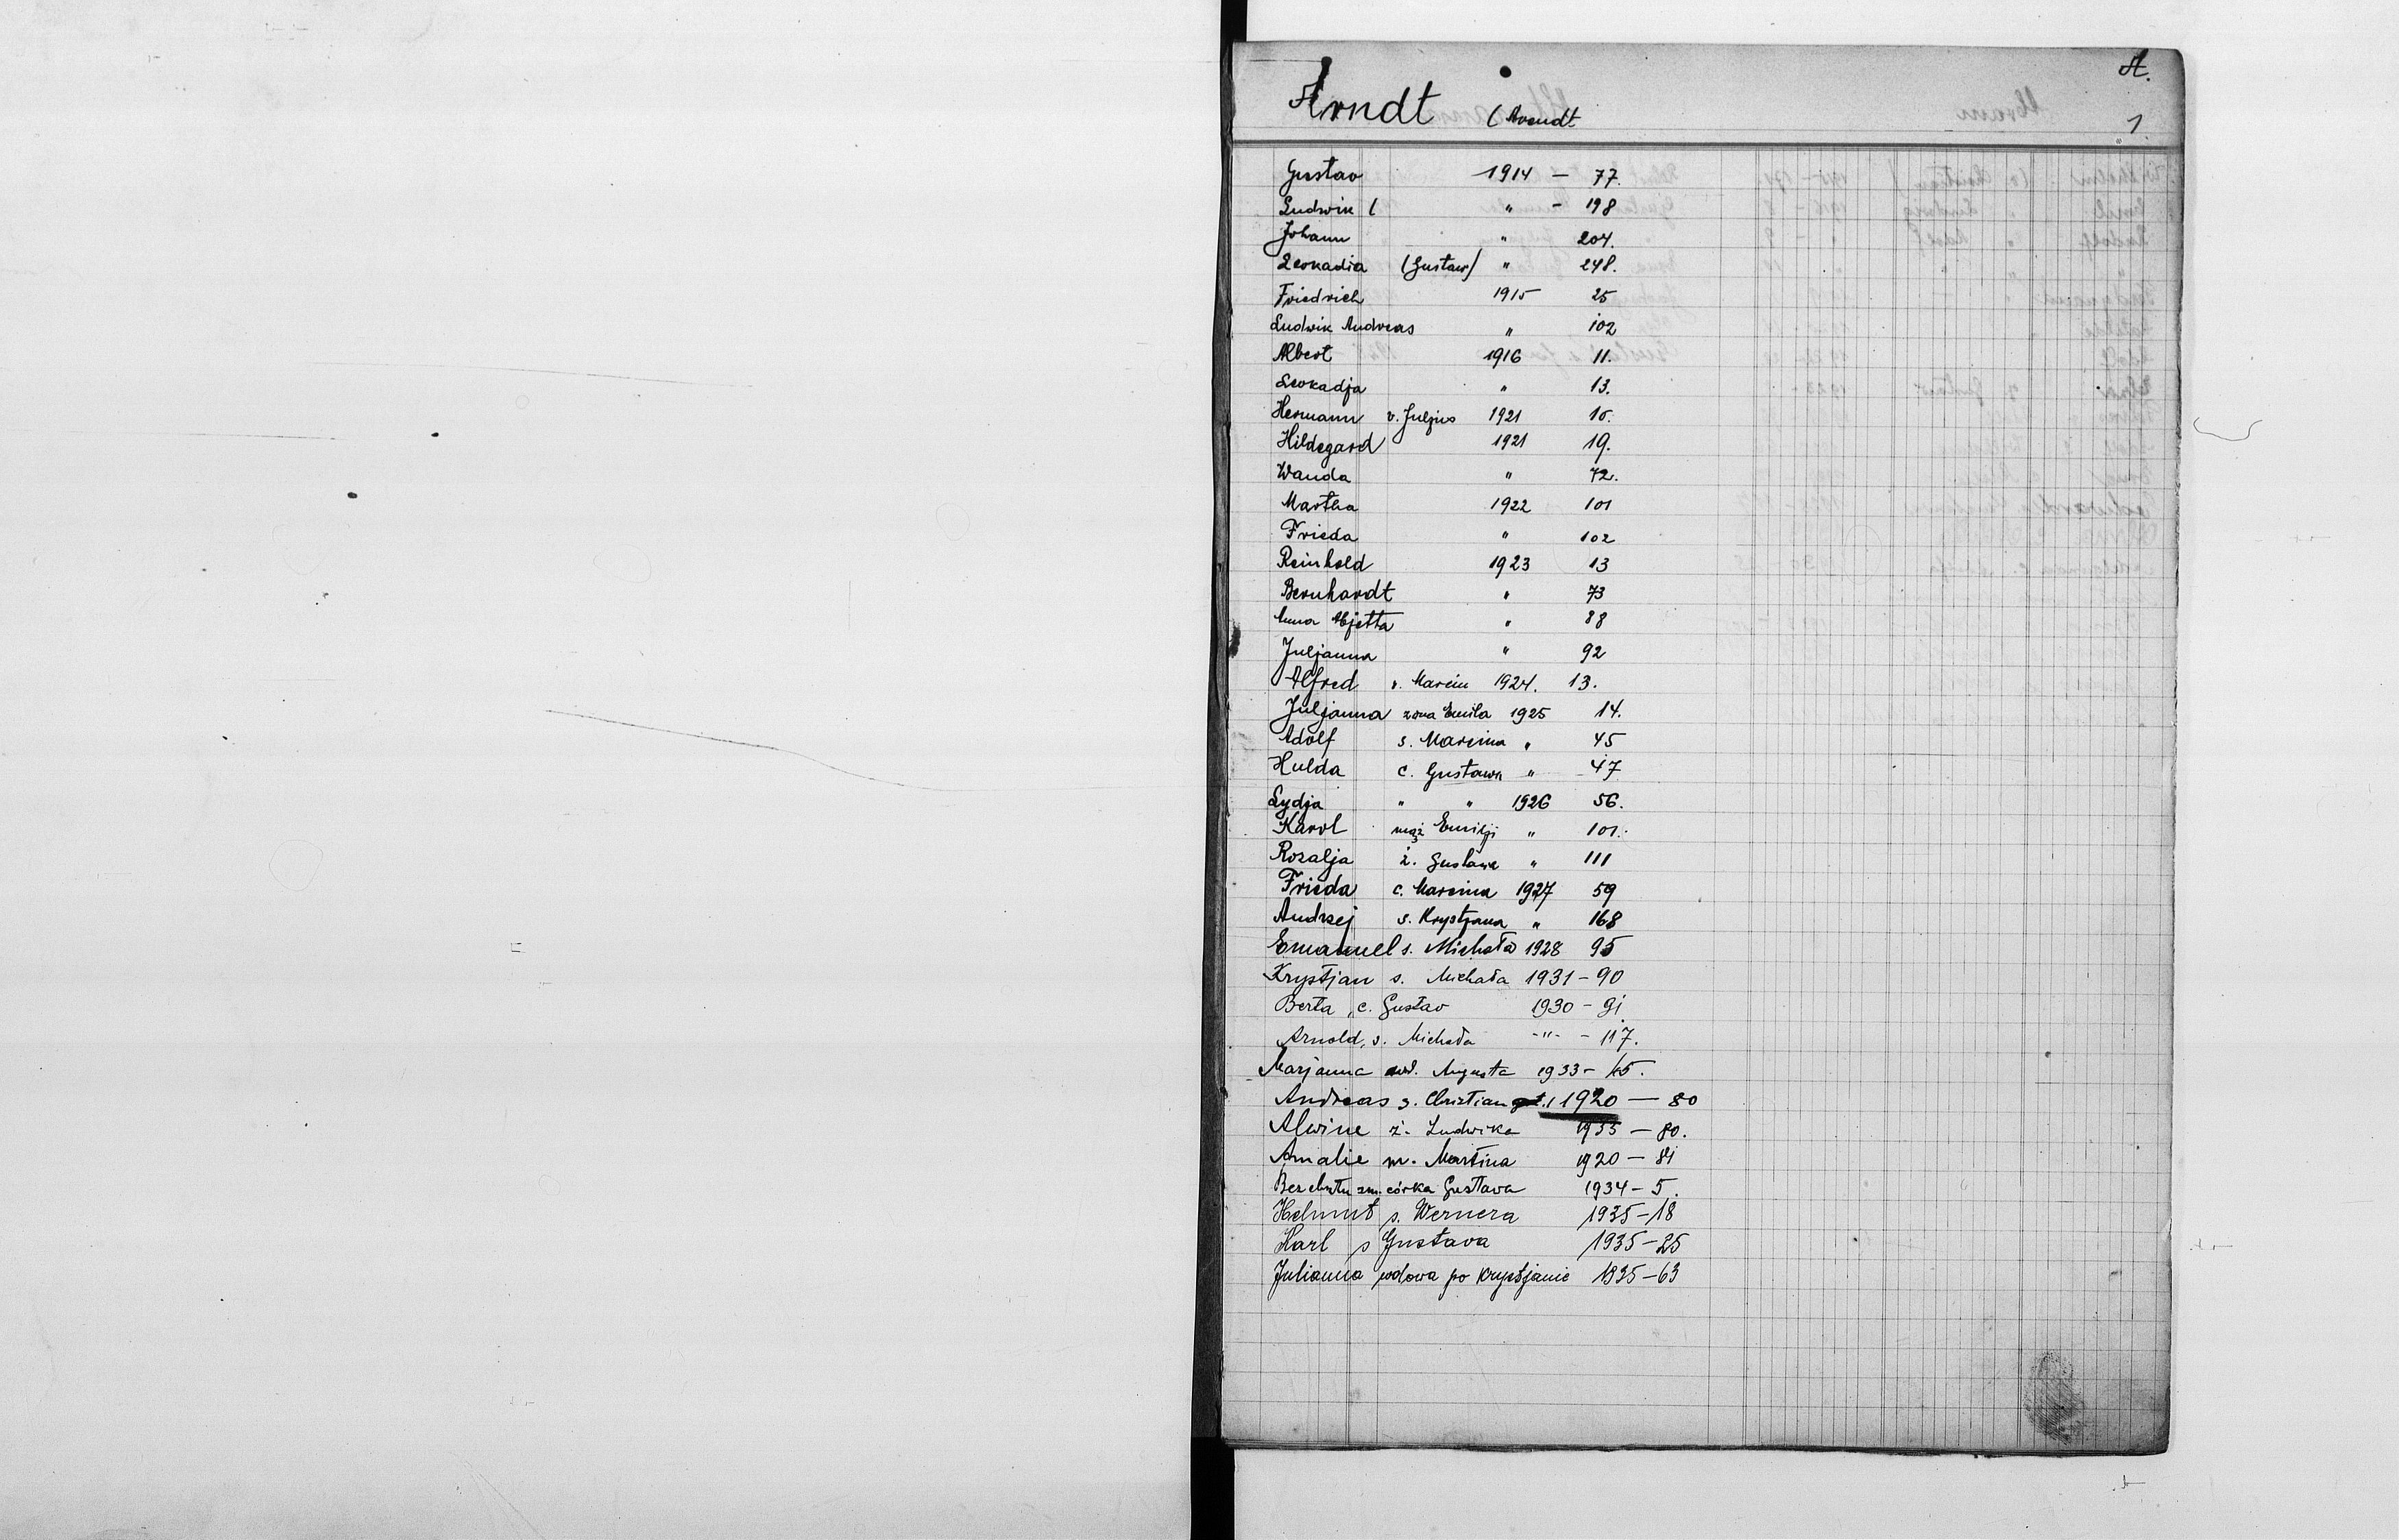 A.
Arndt (Arendt
1.
Gustav 1914 — 77.
Ludwik ( " - 198
Johann " 204.
Leokadia (Gustaw) " 248.
Friedrich 1915 25
Ludwik Andreas " 102
Albert 1916 11.
Leokadja " 13.
Hermann v. Juljus 1921 10.
Hildegard 1921 19.
Wanda " 72.
Martha 1922 101
Frieda " 102
Reinhold 1923 13
Bernhardt " 73
Anna " 88
Juljanna " 92
Alfred v. Marcin 1924. 13.
Juljanna żona Emila 1925 14.
Adolf s. Marcina " 45
Hulda c. Gustawa " 47
Lydja " " 1926 56.
Karol mąż Emilji " 101.
Rozalja ż. Gustawa " 111
Frieda c. Marcina 1927 59
Andrzej s. Krystjana " 168
Emanuel s. Michała 1928 95
Krystjan s. Michała 1931 - 90
Berta, c. Gustav 1930 - 91
Arnold, s. Michała -"- - 117.
Marjanna wd. Augusta 1933 - 45.
Andreas s. Christian 1920 — 80
Alwine ż. Ludwika 1933 — 80.
Amalie m. Martina 1920 — 81
Bez chrztu zm. córka Gustava 1934 - 5.
Helmut s. Wernera 1935 - 18
Karl s Gustava 1935 - 25
Julianna wdowa po Krystjanie 1935 - 63